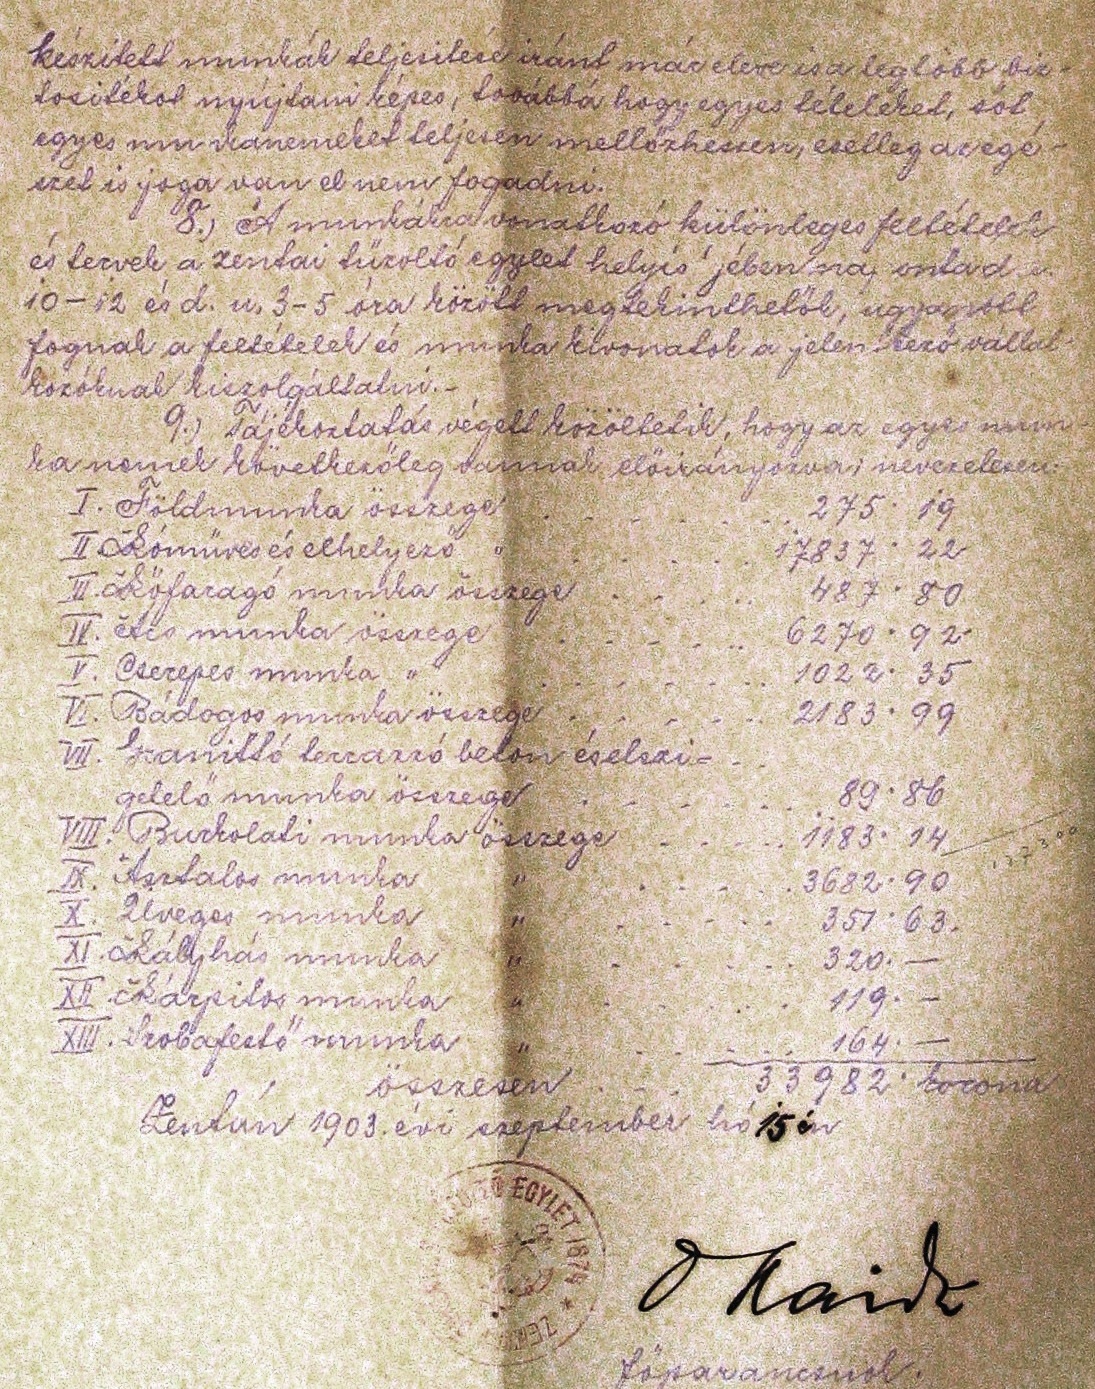 készített munkák teljesitése iránt már eleve is a legtöbb biz-
tositékot nyújtani képes, továbbá hogy egyes tételeket, sőt
egyes munkanemeket teljesen mellőzhessen, esetleg az egé-
szet is joga van el nem fogadni.
8.) A munkákra vonatkozó különleges feltételek
és tervek a zentai tűzoltó egylet helyiségében naponta d. e.
10-12 és d. u. 3-5 óra között megtekinthetők, ugyanott
fognak a feltételek és munka kivonatok a jelentkező vállal-
kozóknak kiszolgáltatni.-
9.) Tájékoztatás végett közöltetik, hogy az egyes mun-
ka nemek következőleg vannak előirányozva; nevezetesen:
I. Földmunka összege . . . . . . 275·19
II. Kőműves és elhelyező " . . . . 17837·22
III. Kőfaragó munka összege . . . . 487·80
IV. Ács munka összege . . . . 6270·92
V. Cserepes munka " . . . . . . 1022·35
VI. Bádogos munka összege . . . . . 2183·99
VII. Granittó terrazzó beton és elszi-
getelő munka összege . . . . 89·86
VIII. Burkolati munka összege . . . . 1183·14
IX. Asztalos munka " . . . . 3682·90
X. Üveges munka " . . . . . 351·63.
XI. Kályhás munka " . . . . . 320.—
XII. Kárpitos munka " . . . . . 119.—
XIII. Szobafestő munka " . . . . 164.—
összesen . . . 33982· korona
Zentán 1903. évi szeptember hó 15 én
EGYLET 1874
főparancsnok.